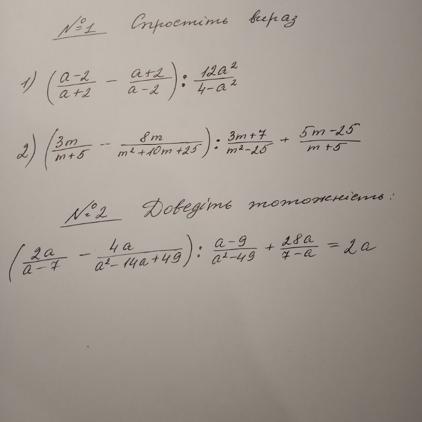 №1 Спростіть вираз
1) (a-2/a+2 - a+2/a-2) : 12a²/4-a²
2) (3m/m+5 - 8m/m²+10m+25) : 3m+7/m²-25 + 5m-25/m+5
№2 Доведіть тотожність:
(2a/a-7 - 4a/a²-14a+49) : a-9/a²-49 + 28a/7-a = 2a